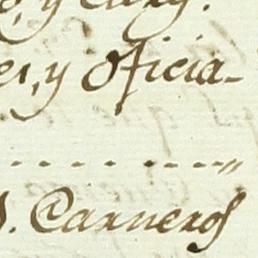 y
es, y Oficia-
Carneros